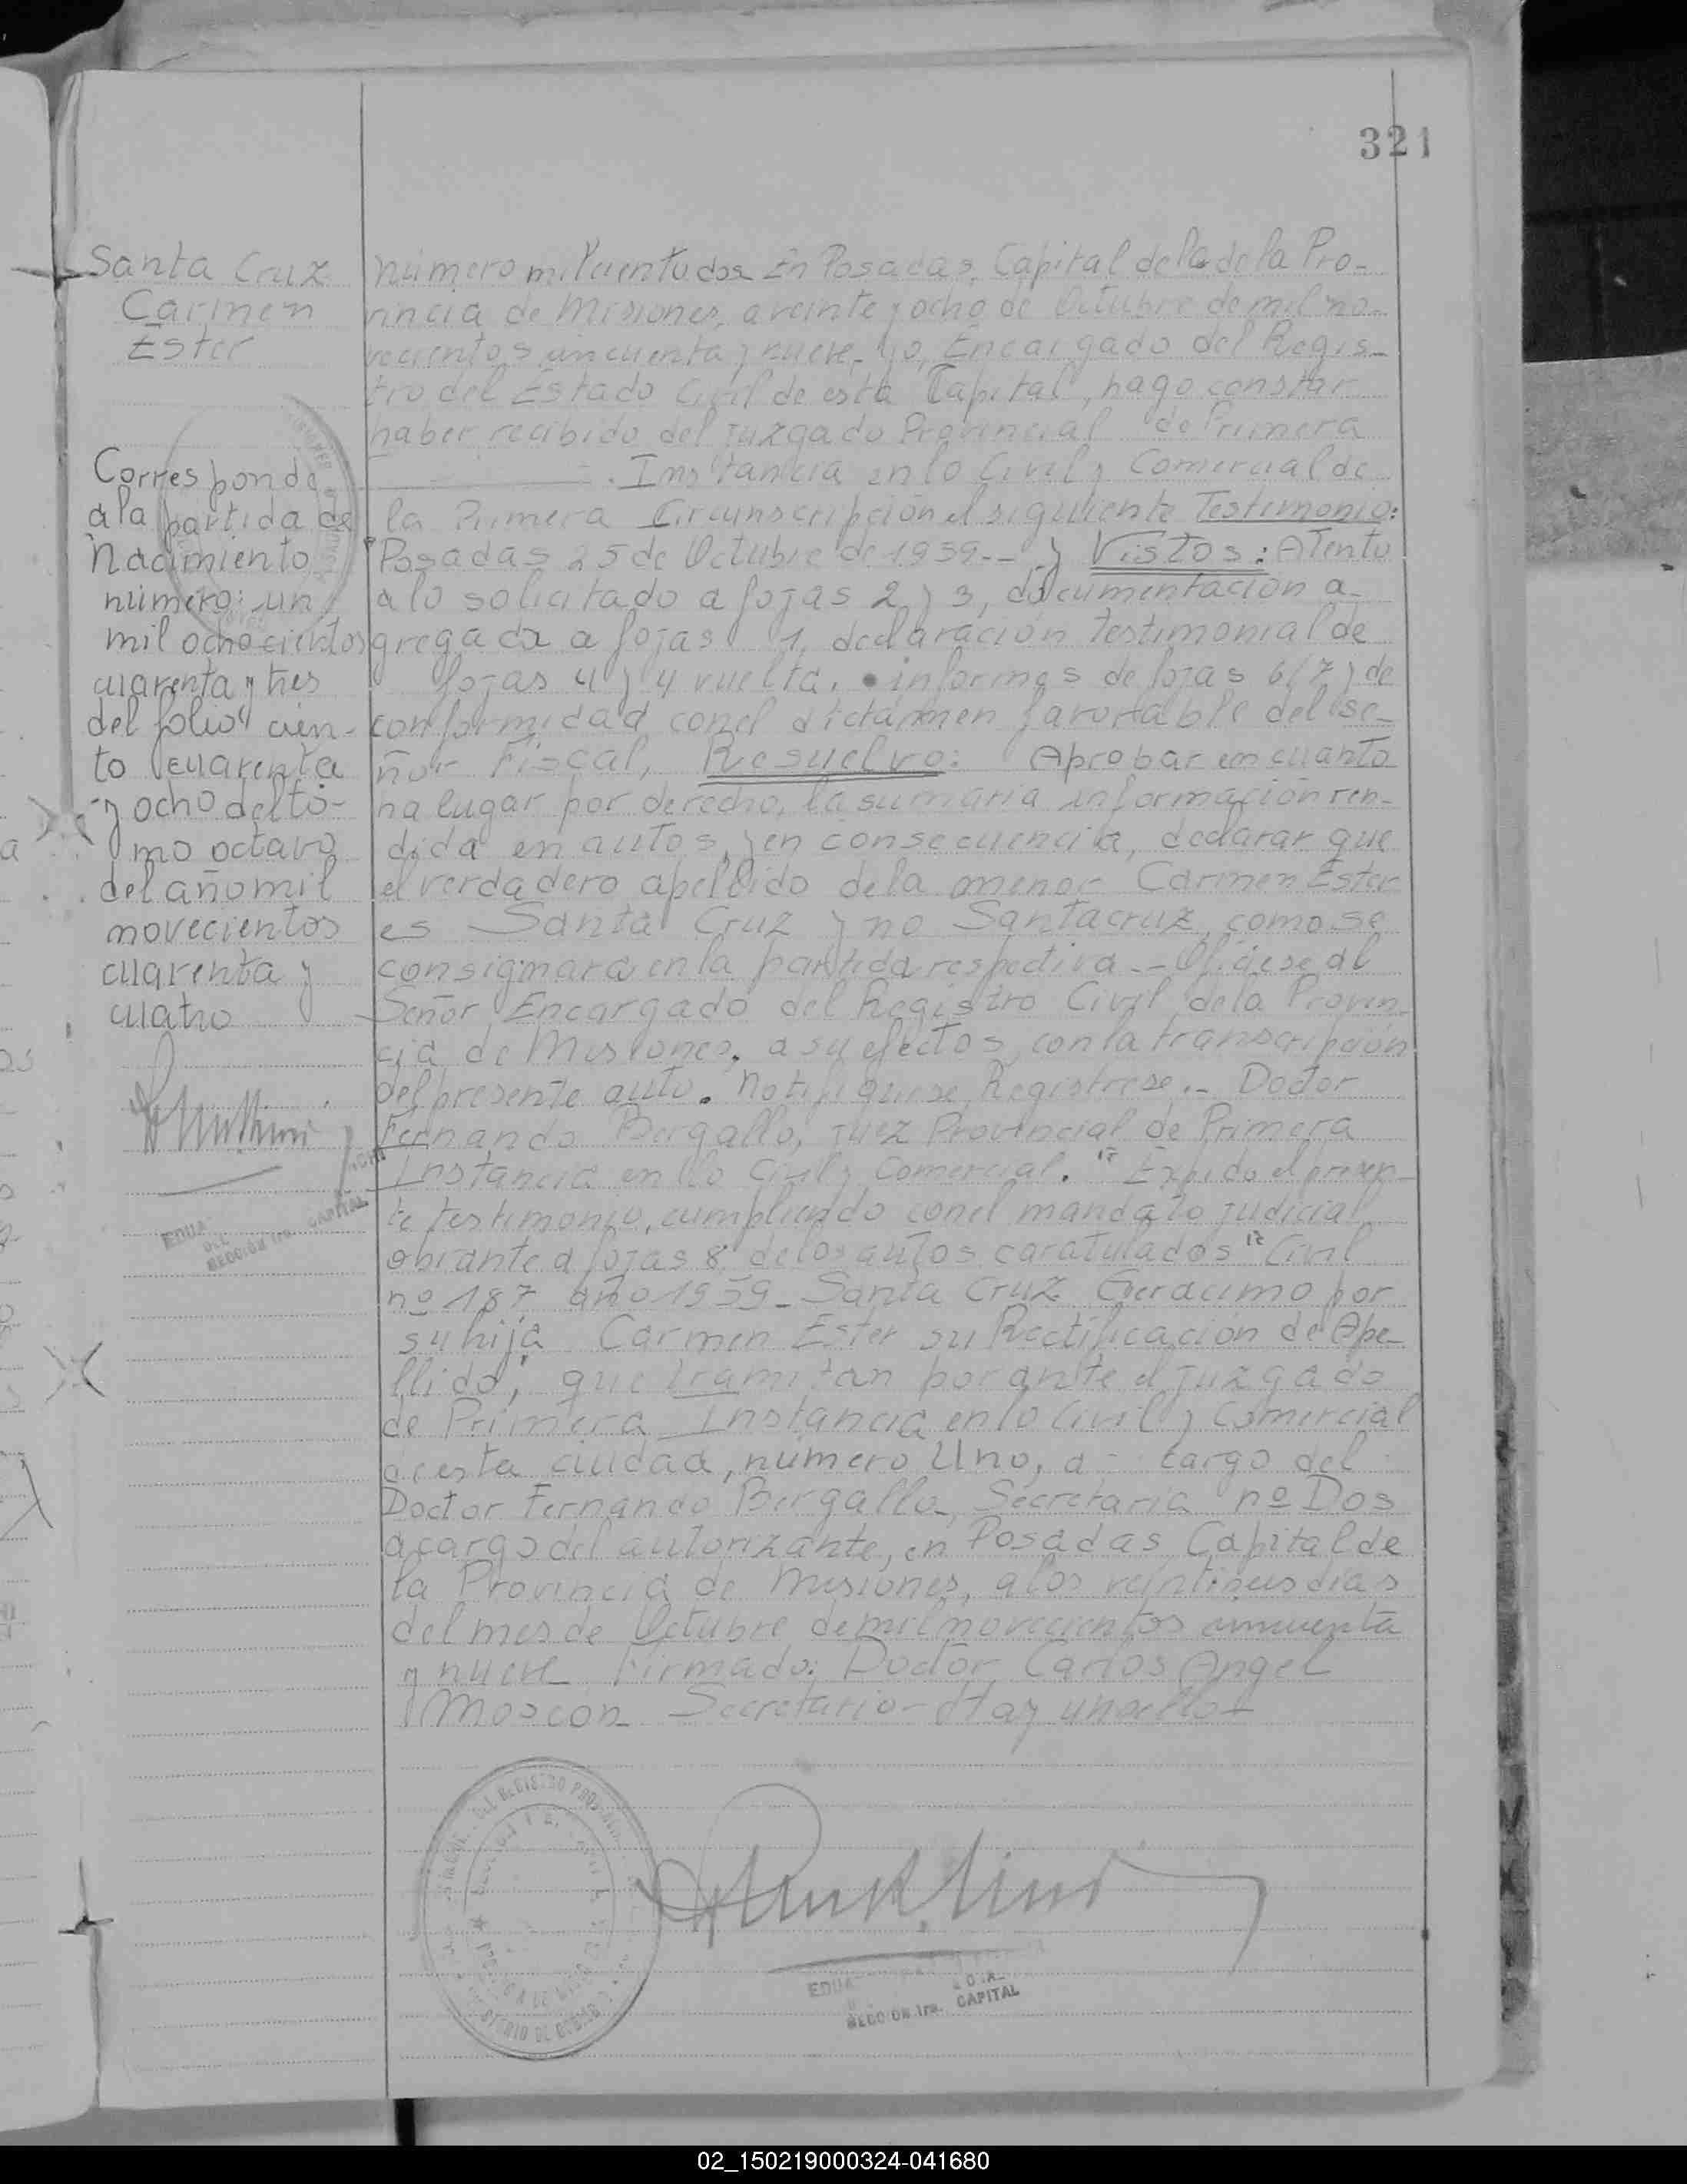 321
Santa Cruz
Carmen
Ester
Corresponde
a la partida de
Nacimiento
número: un
mil ochocientos
cuarenta y tres
del folio cien-
to cuarenta
y ocho del to-
mo octavo
del año mil
novecientos
cuarenta y
cuatro
EDUA
DEL
SECCION 1ra. CAPITAL
Número mil ciento dos En Posadas, Capital de la de la Pro-
vincia de Misiones, a veinte y ocho de Octubre de mil no-
vecientos cincuenta y nueve, yo, Encargado del Regis-
tro del Estado Civil de esta Capital, hago constar
haber recibido del Juzgado Provincial de Primera
Instancia en lo Civil y Comercial de
la Primera Circunscripción el siguiente Testimonio:
"Posadas 25 de Octubre de 1959-- y Vistos: Atento
a lo solicitado a fojas 2 y 3, documentación a-
gregada a fojas 1, declaración testimonial de
fojas 4 y 4 vuelta, informes de fojas 6/7 y de
conformidad con el dictámen favorable del se-
ñor Fiscal, Resuelvo: Aprobar en cuanto
ha lugar por derecho, la sumaria información ren-
dida en autos, y en consecuencia, declarar que
el verdadero apellido de la menor Carmen Ester
es Santa Cruz y no Santacruz, como se
consignara en la partida respectiva.- Ofíciese al
Señor Encargado del Registro Civil de la Provin-
cia de Misiones, a su efectos, con la transcripción
del presente auto. Notifiquese, Registrese.- Doctor
Fernando Bergallo, Juez Provincial de Primera
Instancia en lo Civil y Comercial." Expido el presen-
te testimonio, cumpliendo con el mandato judicial
obrante a fojas 8 de los autos caratulados "Civil
nº 187 año 1959- Santa Cruz Geracimo por
su hija Carmen Ester su Rectificación de Ape-
llido", que tramitan por ante el Juzgado
de Primera Instancia en lo Civil y Comercial
de esta ciudad, número Uno, a cargo del
Doctor Fernando Bergallo, Secretaria nº Dos
a cargo del autorizante, en Posadas, Capital de
la Provincia de Misiones, a los días
del mes de Octubre de mil novecientos cincuenta
y nueve Firmado: Doctor Carlos Angel
Moscon Secretario- Hay un sello-
EDUA
SECCION 1ra. CAPITAL
02_150219000324-041680